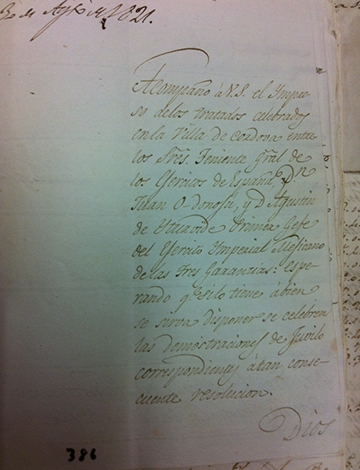 30 de Agto de 1821.
Acompaño á V.S. el Impre-
so de los tratados celebrados
en la Villa de Cordova entre
los Sres. Teniente Gral de
los Egercitos de España, D.n
Juan O Donojú, y D. Agustin
de Yturvide Primer Gefe
del Egercito Imperial Megicano
de las Tres Garantias: Espe-
rando q.e si lo tiene á bien
se sirva disponer se celebren
las demostraciones de Juvilo
correspondientes á tan conse-
cuente resolucion.
Dios
386